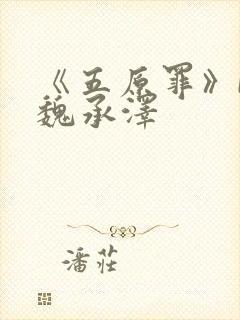 《五原罪》
魏承澤
潘莊